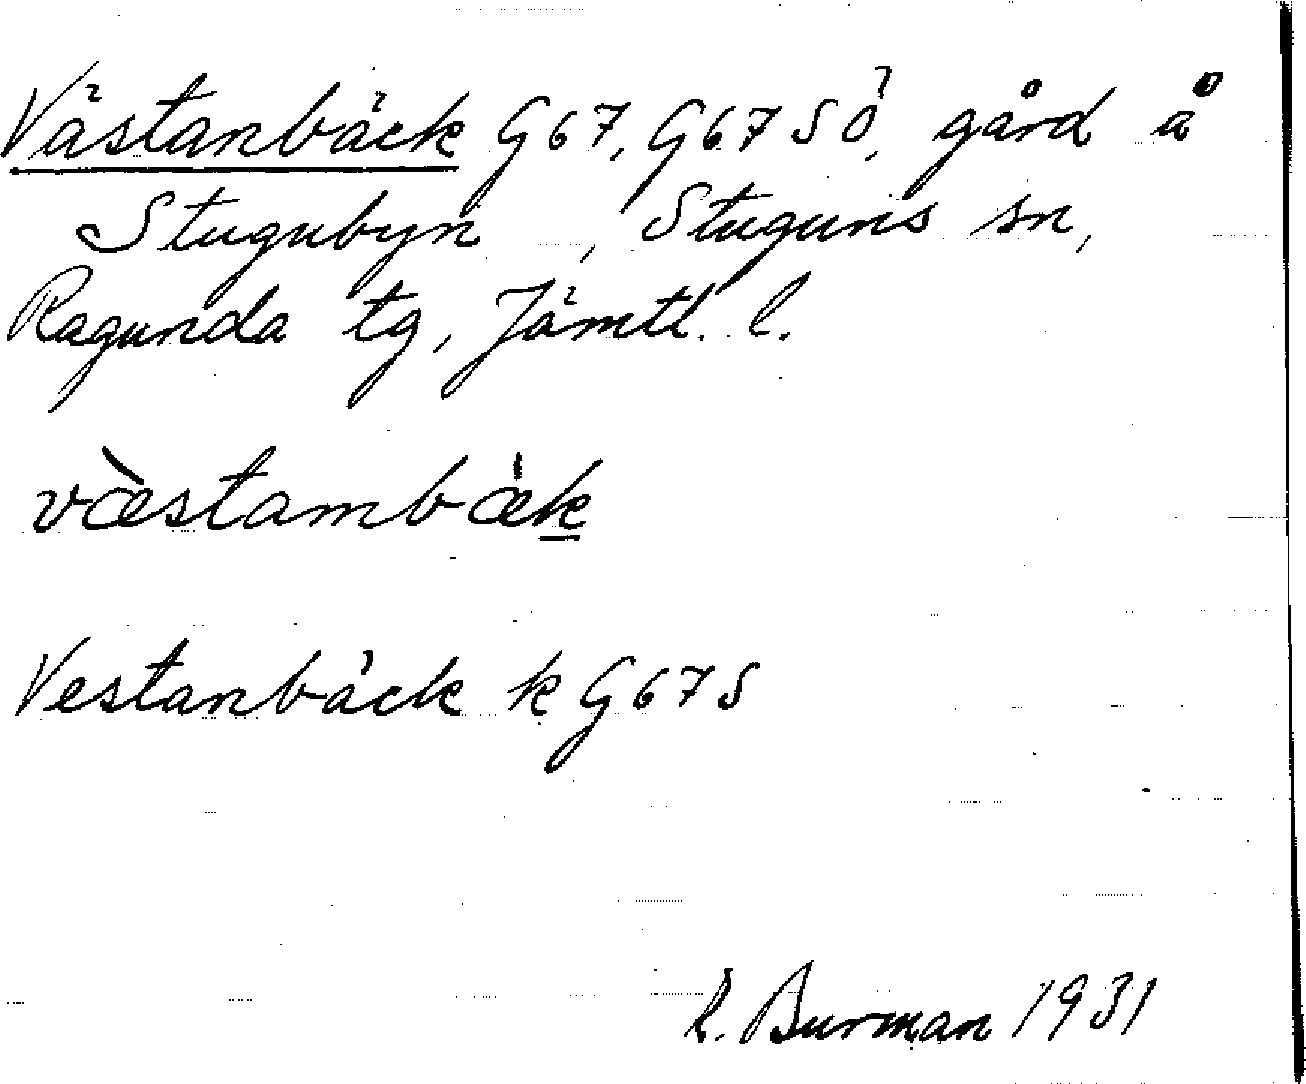 Västanbäck G67, G67SÖ, gård å
Stugubyn, Stuguns sn,
Ragunda tg, Jämtl. l.
væ̀stambæ̍k
Vestanbäck k G67S
R. Burman 1931